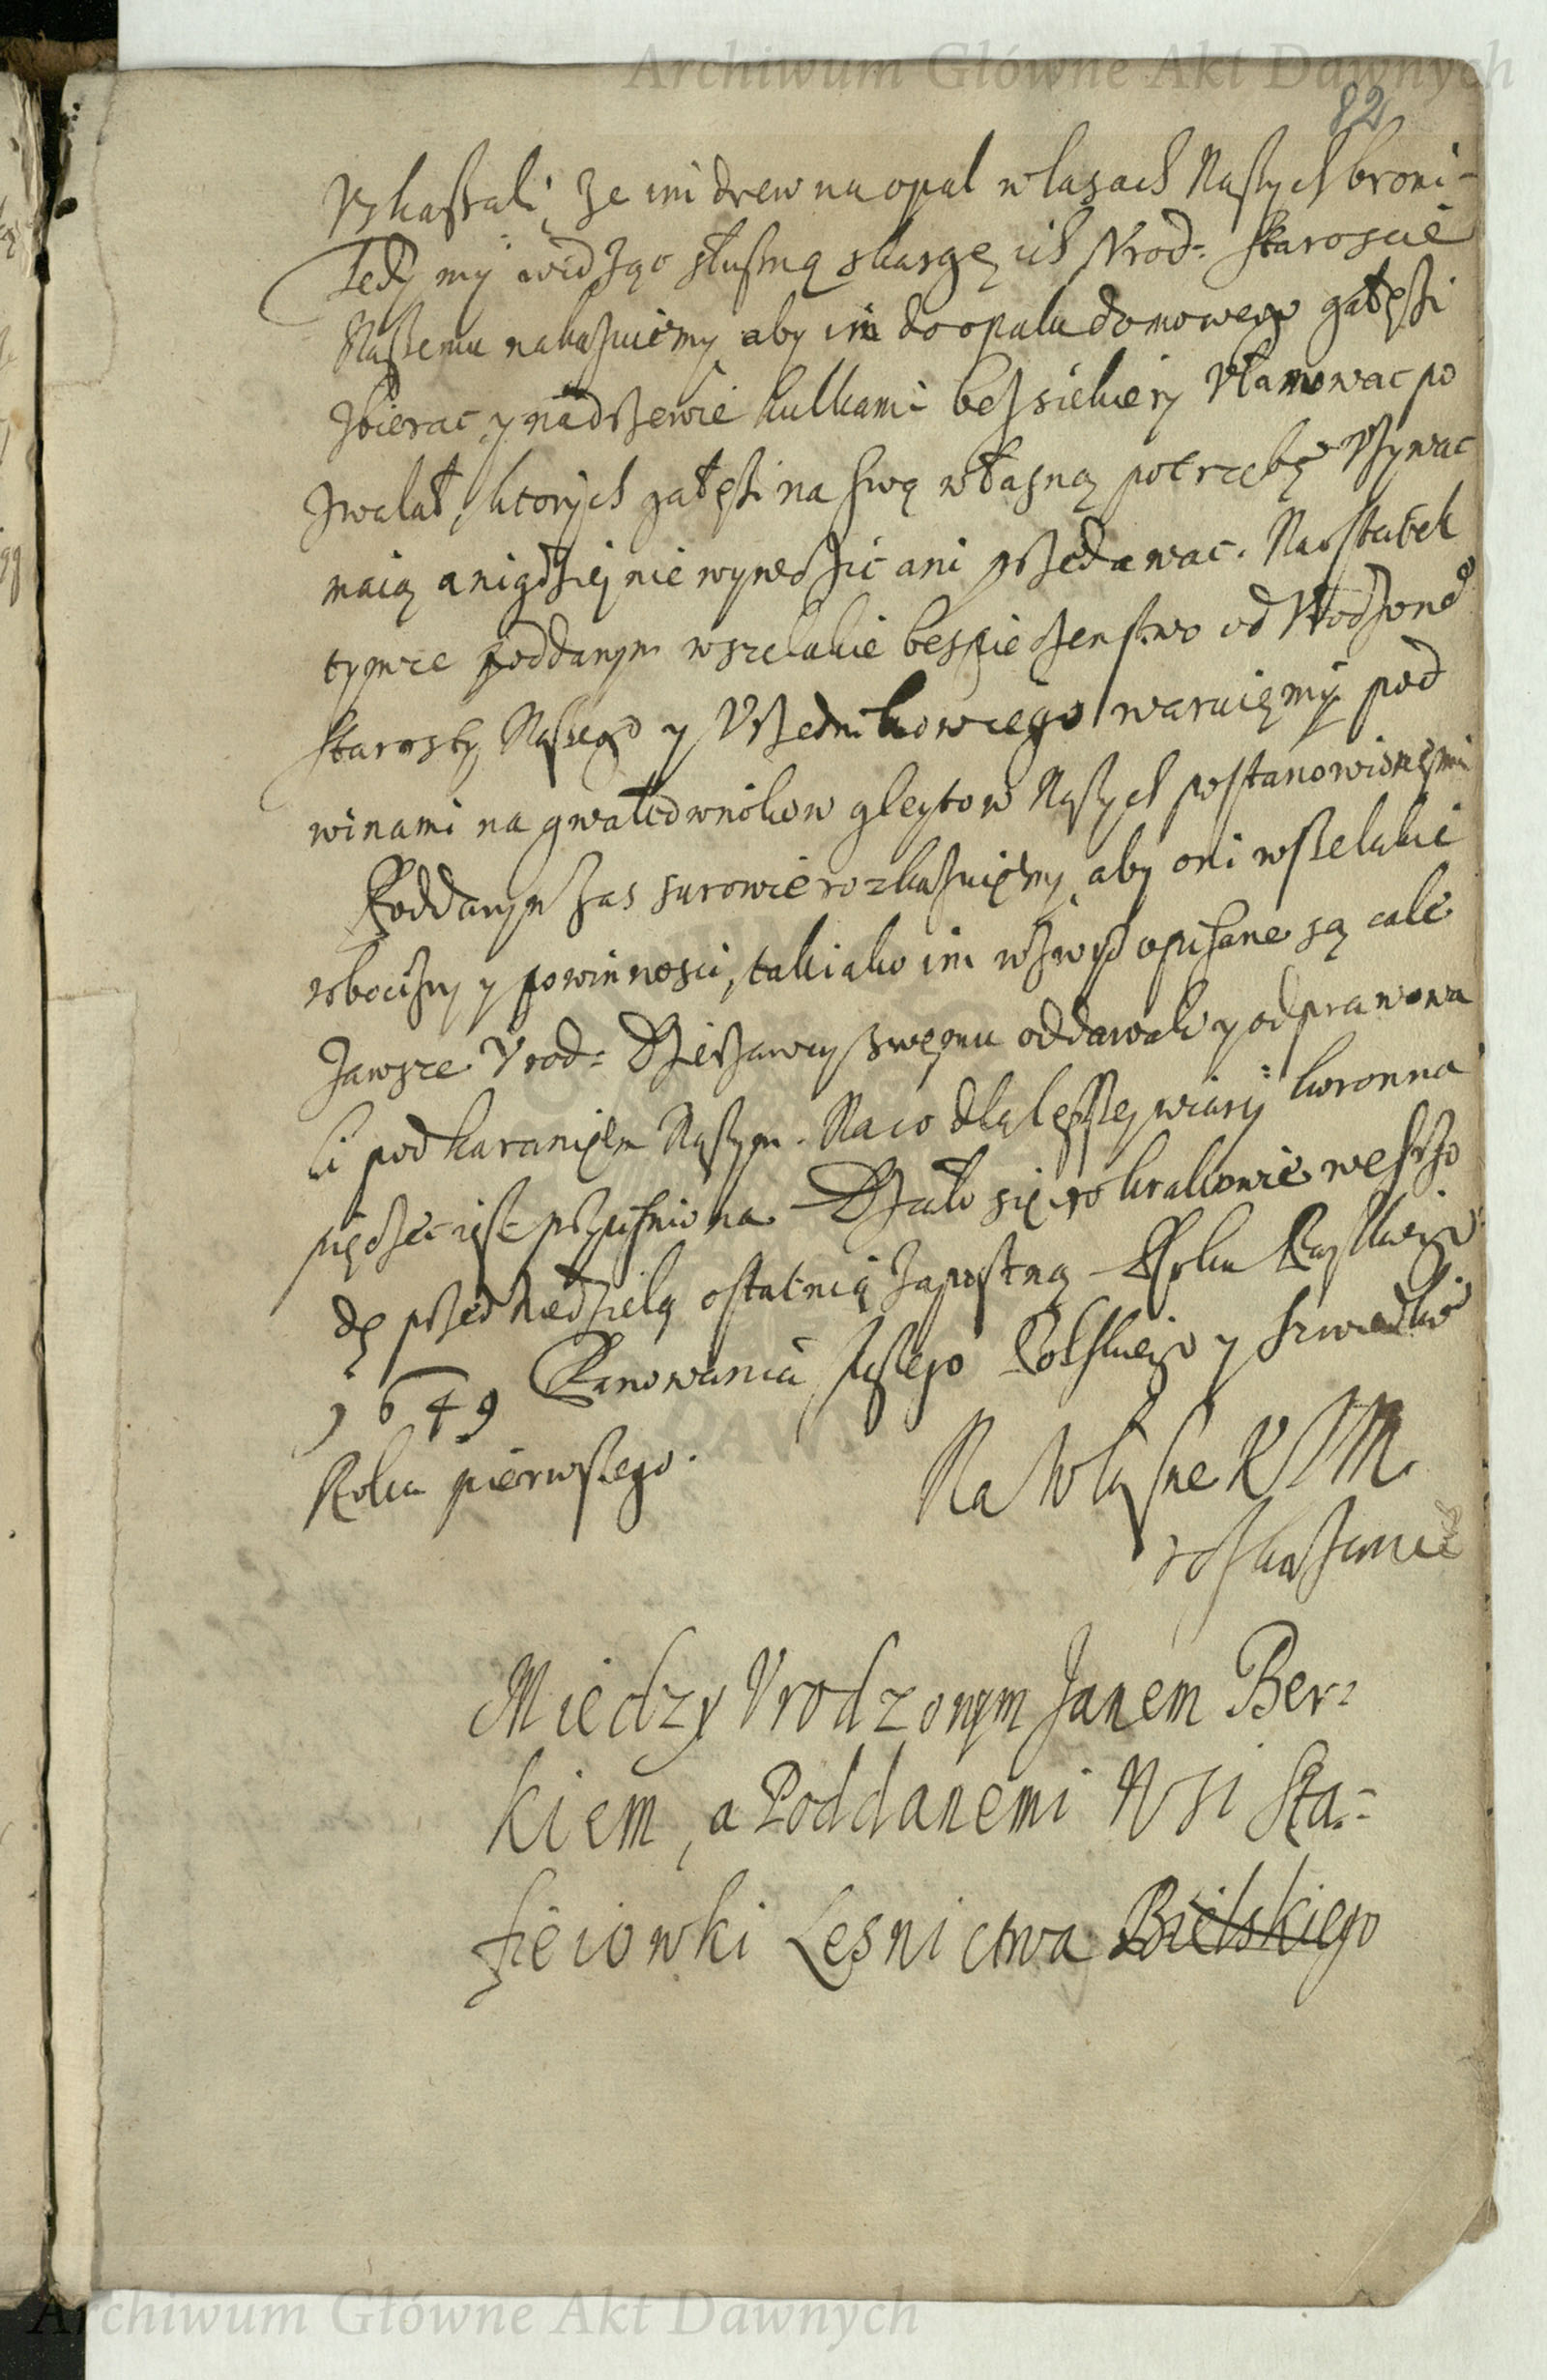 Archiwum Główne Akt Dawnych
82
że im drew na opal w lasach Naszych broni-
Tedy my widząc słuszną skargę ich Vrod: Staroscie
Naszemu nakazuiemy aby im do opalu domowego gałęzi
zbierac y na drzewie kulkami bez siekiery vłamowac po
zwalał, ktorych gałęzi na swą własną potrzebę vżywac
maią a nigdziey nie wynosic ani przedawac. Na ostatek
tymże poddanym wszelakie bespieczenstwo od Vrodzone°
Starosty Naszego y Vrzednikow iego waruięmy pod
winami na gwałtownikow gleytow Naszych postanowionemi
Poddanym zas surowie rozkazuięmy, aby oni wszelakie
robocizny y powinnosci, tak iako im wzwysz opisane są cale
zawsze Vrod: Dzierzawcy swęmu oddawali y odprawowa
li pod karanięm Naszym. Na co dla lepszey wiary koronna
pięczęc iest przycisniona. Działo się w Krakowie we szro
dę przed niedzielą ostatnią zapustną Roku Panskiego
1649 Panowania Naszego Polskiego y Szwedzkie°
Roku pierwszego.
Na własne K J M
roskazanie
Miedzy Vrodzonym Janem Ber:
kiem, a Poddanemi Wsi Sta:
sieiowki Lesnictwa Bielskiego
Archiwum Główne Akt Dawnych